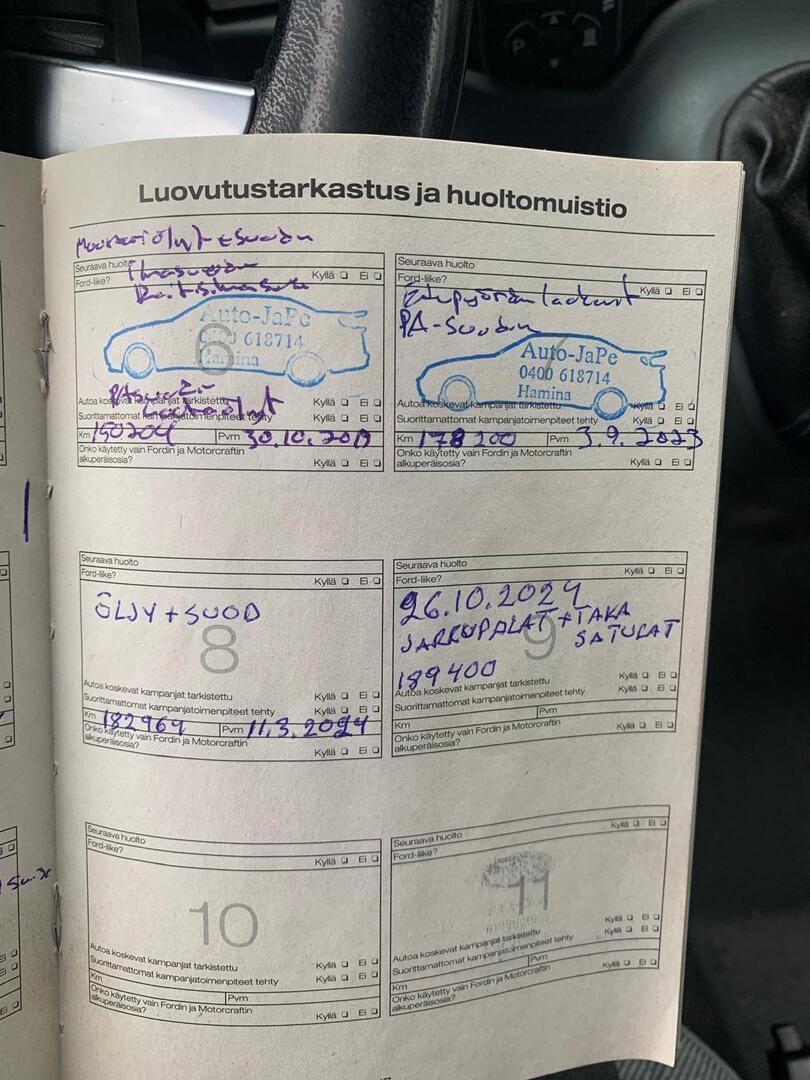 Luovutustarkastus ja huoltomuistio
Moottoriöljyt + suodin
Seuraava huolto
Ilmasuodin
Ford-liike?
Kyllä Ei
Raitisilmasuod
Auto-JaPe
0400 618714
6
Hamina
Autoa koskevat kampanjat tarkistettu
Kyllä Ei
Suorittamattomat kampanjatoimenpiteet tehty
Kyllä Ei
Km 150204 Pvm 30.10.2019
Onko käytetty vain Fordin ja Motorcraftin
alkuperäisosia?
Kyllä Ei
Seuraava huolto
Ford-liike?
Kyllä Ei
PA-suodin
Auto-JaPe
0400 618714
7
Hamina
Autoa koskevat kampanjat tarkistettu
Kyllä Ei
Suorittamattomat kampanjatoimenpiteet tehty
Kyllä Ei
Km 178200 Pvm 3.9.2023
Onko käytetty vain Fordin ja Motorcraftin
alkuperäisosia?
Kyllä Ei
Seuraava huolto
Ford-liike?
Kyllä Ei
ÖLJY + SUOD
8
Autoa koskevat kampanjat tarkistettu
Kyllä Ei
Suorittamattomat kampanjatoimenpiteet tehty
Kyllä Ei
Km 182969 Pvm 11.3.2024
Onko käytetty vain Fordin ja Motorcraftin
alkuperäisosia?
Kyllä Ei
Seuraava huolto
Ford-liike?
Kyllä Ei
26.10.2024
JARRUPALAT + TAKA
SATULAT
9
189400
Autoa koskevat kampanjat tarkistettu
Kyllä Ei
Suorittamattomat kampanjatoimenpiteet tehty
Kyllä Ei
Km Pvm
Onko käytetty vain Fordin ja Motorcraftin
alkuperäisosia?
Kyllä Ei
Seuraava huolto
Ford-liike?
Kyllä Ei
10
Autoa koskevat kampanjat tarkistettu
Kyllä Ei
Suorittamattomat kampanjatoimenpiteet tehty
Kyllä Ei
Km Pvm
Onko käytetty vain Fordin ja Motorcraftin
alkuperäisosia?
Kyllä Ei
Seuraava huolto
Ford-liike?
Kyllä Ei
11
Autoa koskevat kampanjat tarkistettu
Kyllä Ei
Suorittamattomat kampanjatoimenpiteet tehty
Kyllä Ei
Km Pvm
Onko käytetty vain Fordin ja Motorcraftin
alkuperäisosia?
Kyllä Ei
P